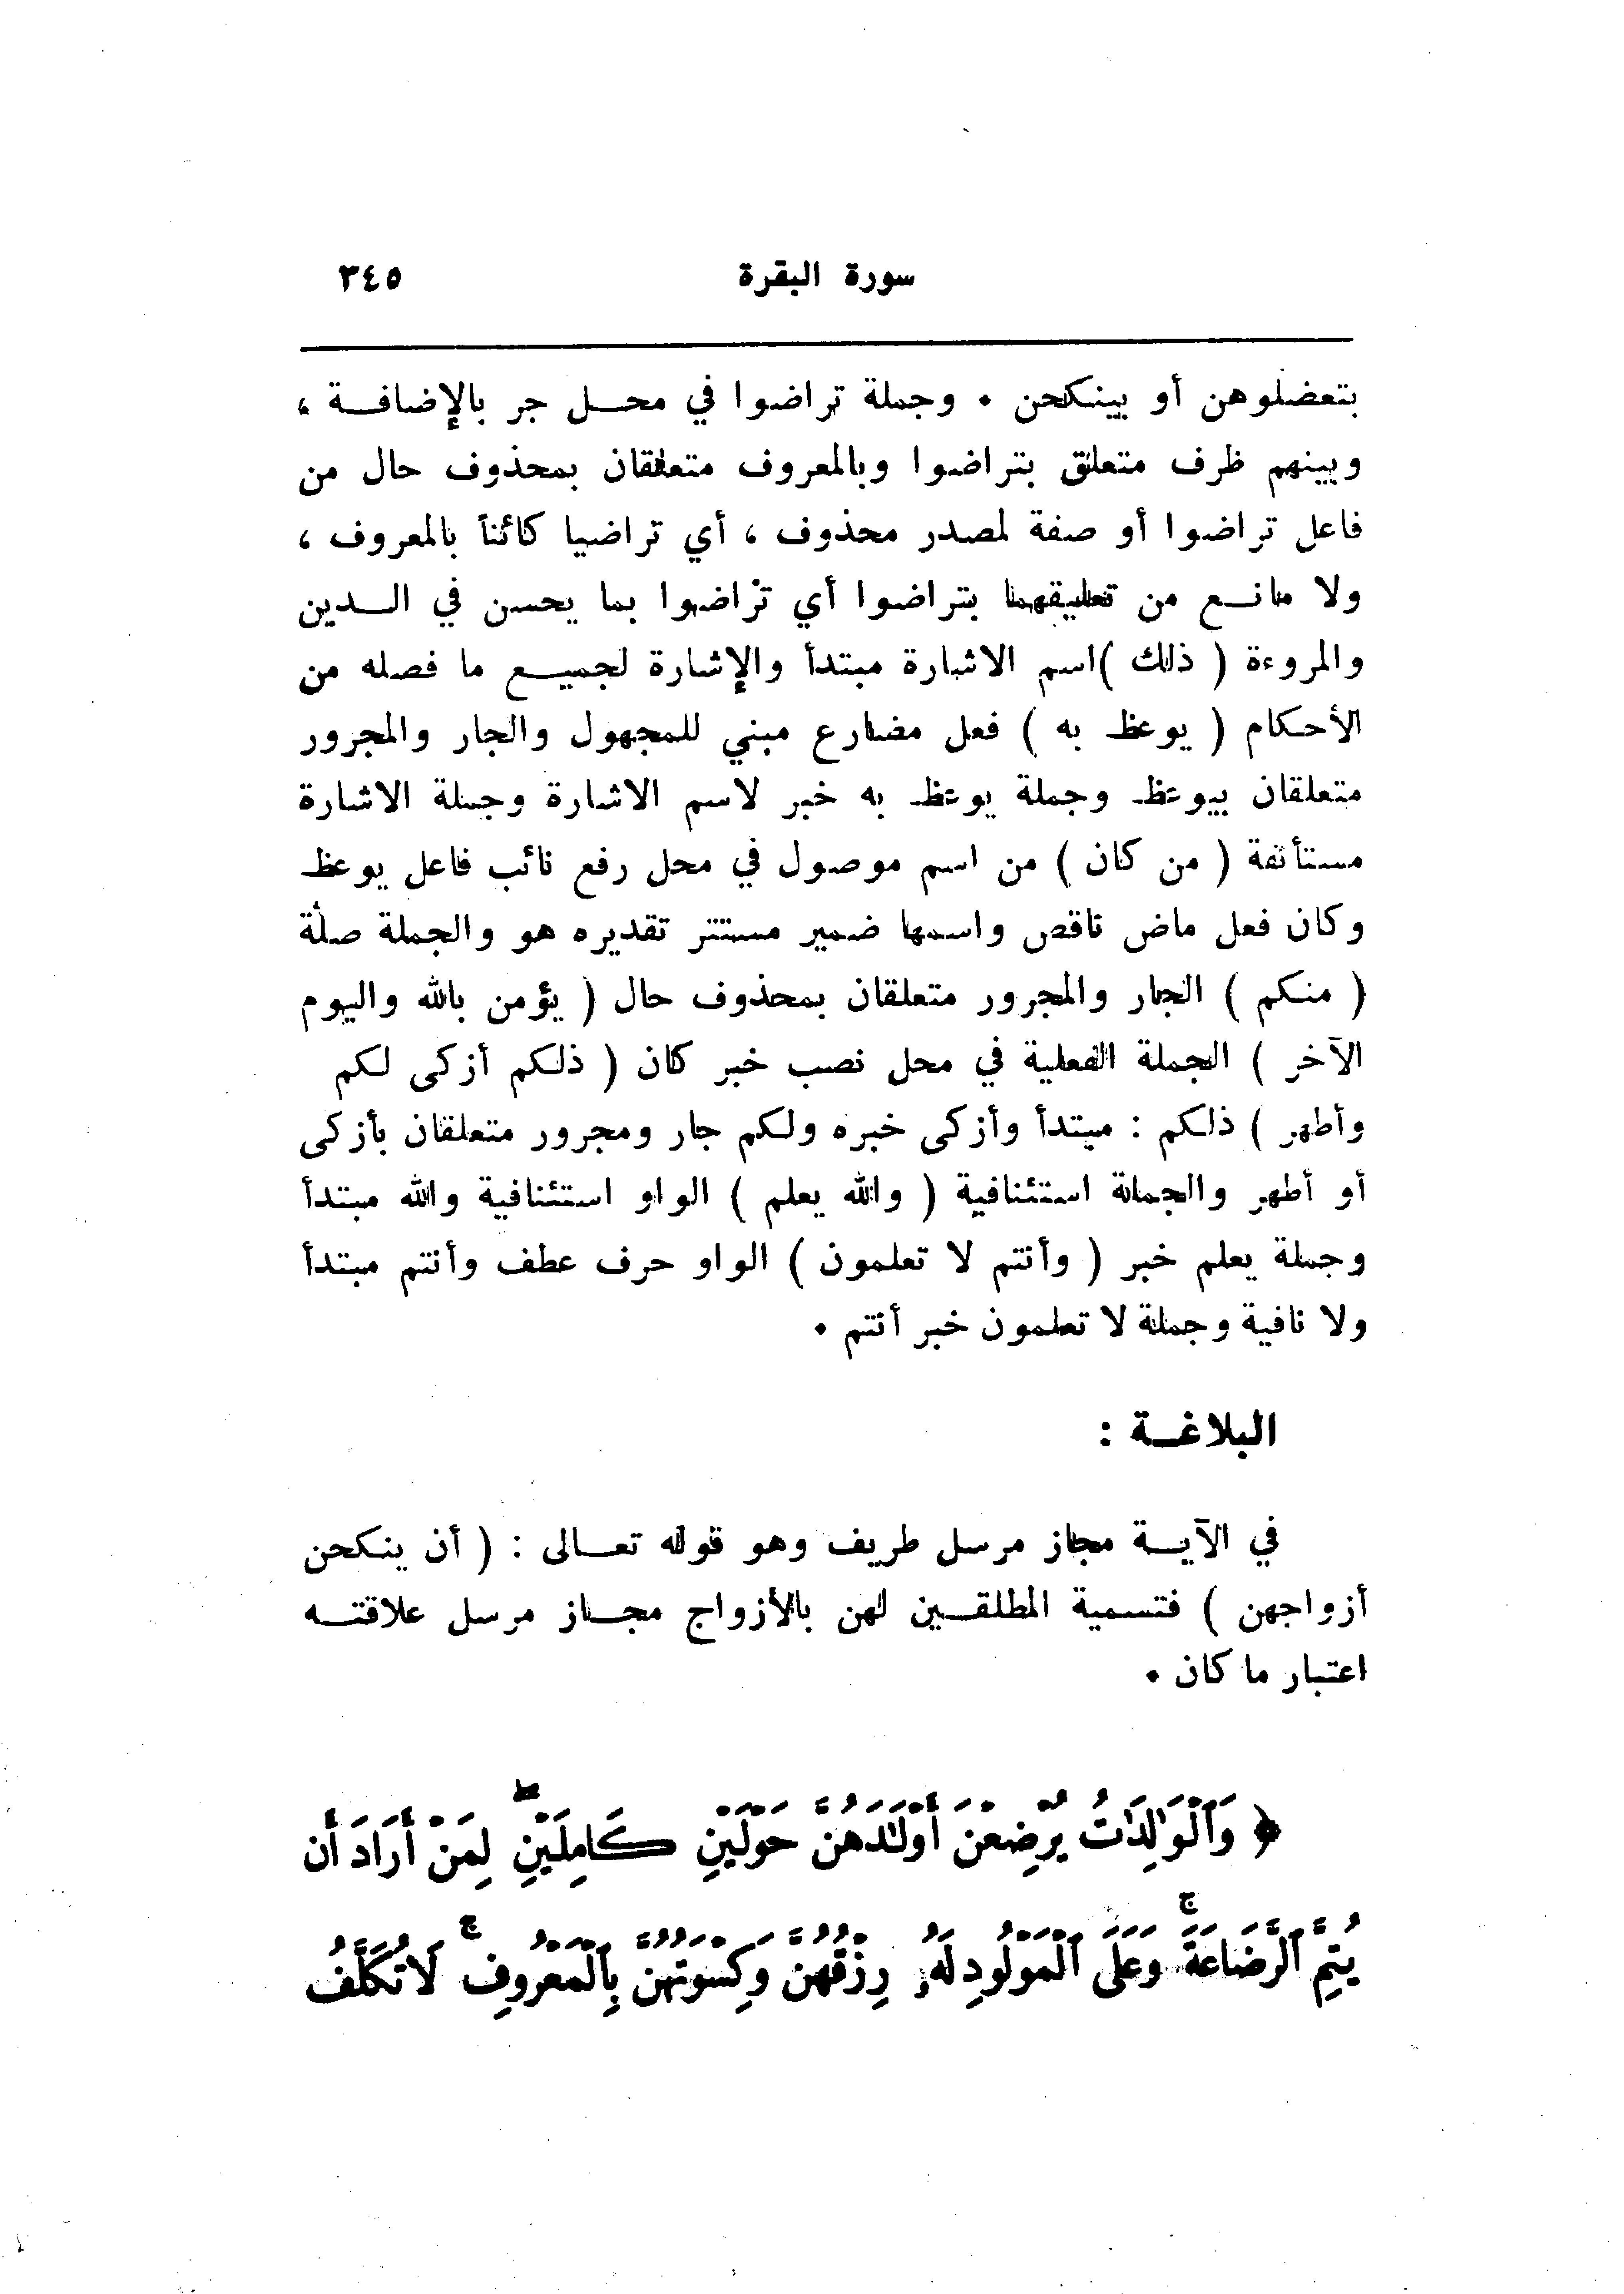 سورة البقرة ٣٤٥
بتعضلوهن أو بينكحن . وجملة تراضوا في محل جر بالإضافة ،
وبينهم ظرف متعلق بتراضوا وبالمعروف متعلقان بمحذوف حال من
فاعل تراضوا أو صفة لمصدر محذوف ، أي تراضيا كائناً بالمعروف ،
ولا مانع من تعليقهما بتراضوا أي تراضوا بما يحسن في الدين
والمروءة ( ذلك )اسم الاشارة مبتدأ والإشارة لجميع ما فصله من
الأحكام ( يوعظ به ) فعل مضارع مبني للمجهول والجار والمجرور
متعلقان بيوعظ وجملة يوعظ به خبر لاسم الاشارة وجملة الاشارة
مستأنفة ( من كان ) من اسم موصول في محل رفع نائب فاعل يوعظ
وكان فعل ماض ناقص واسمها ضمير مستتر تقديره هو والجملة صلة
( منكم ) الجار والمجرور متعلقان بمحذوف حال ( يؤمن بالله واليوم
الآخر ) الجملة الفعلية في محل نصب خبر كان ( ذلكم أزكى لكم
وأطهر ) ذلكم : مبتدأ وأزكى خبره ولكم جار ومجرور متعلقان بأزكى
أو أطهر والجملة استئنافية ( والله يعلم ) الواو استئنافية والله مبتدأ
وجملة يعلم خبر ( وأنتم لا تعلمون ) الواو حرف عطف وأنتم مبتدأ
ولا نافية وجملة لا تعلمون خبر أنتم .
البلاغة :
في الآية مجاز مرسل طريف وهو قوله تعالى : ( أن ينكحن
أزواجهن ) فتسمية المطلقين لهن بالأزواج مجاز مرسل علاقته
اعتبار ما كان .
﴿ وَٱلْوَٰلِدَٰتُ يُرْضِعْنَ أَوْلَٰدَهُنَّ حَوْلَيْنِ كَامِلَيْنِ ۖ لِمَنْ أَرَادَ أَن
يُتِمَّ ٱلرَّضَاعَةَ ۚ وَعَلَى ٱلْمَوْلُودِ لَهُۥ رِزْقُهُنَّ وَكِسْوَتُهُنَّ بِٱلْمَعْرُوفِ ۚ لَا تُكَلَّفُ